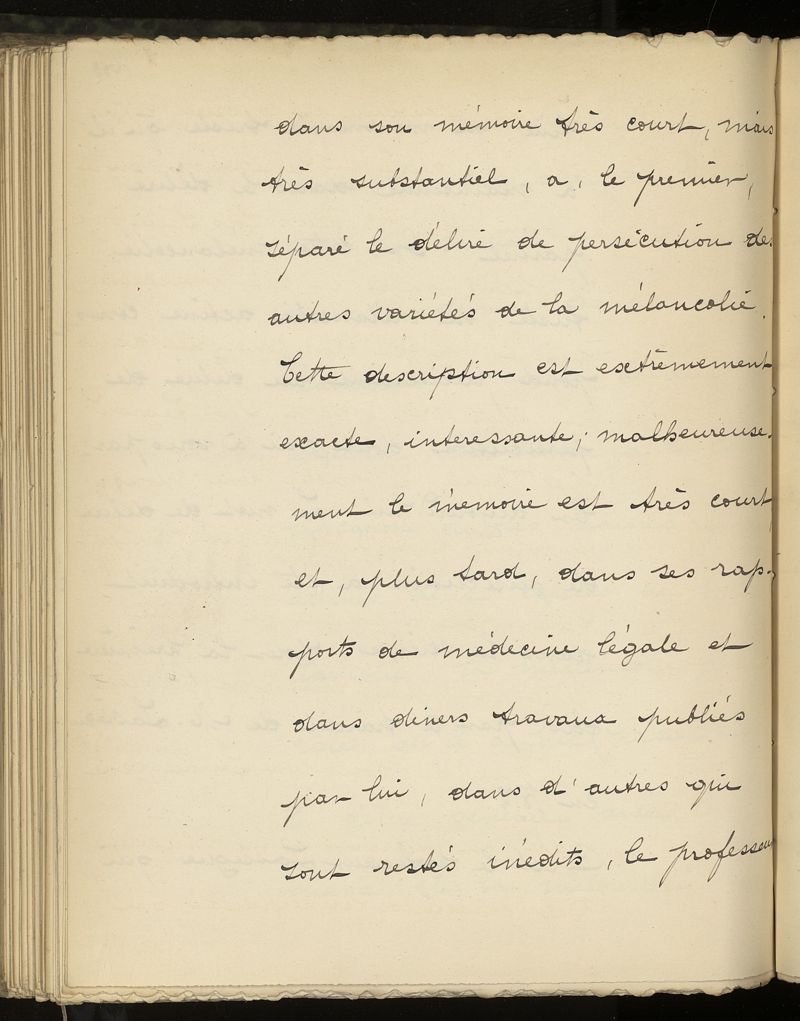 dans son mémoire très court, mais
très substantiel, a, le premier,
séparé le délire de persécution des
autres variétés de la mélancolie.
Cette description est extrêmement
exacte, interessante; malheureuse-
ment le mémoire est très court,
et, plus tard, dans ses rap-
ports de médecine légale et
dans divers travaux publiés
par lui, dans d'autres qui
sont restés inédits, le professeur